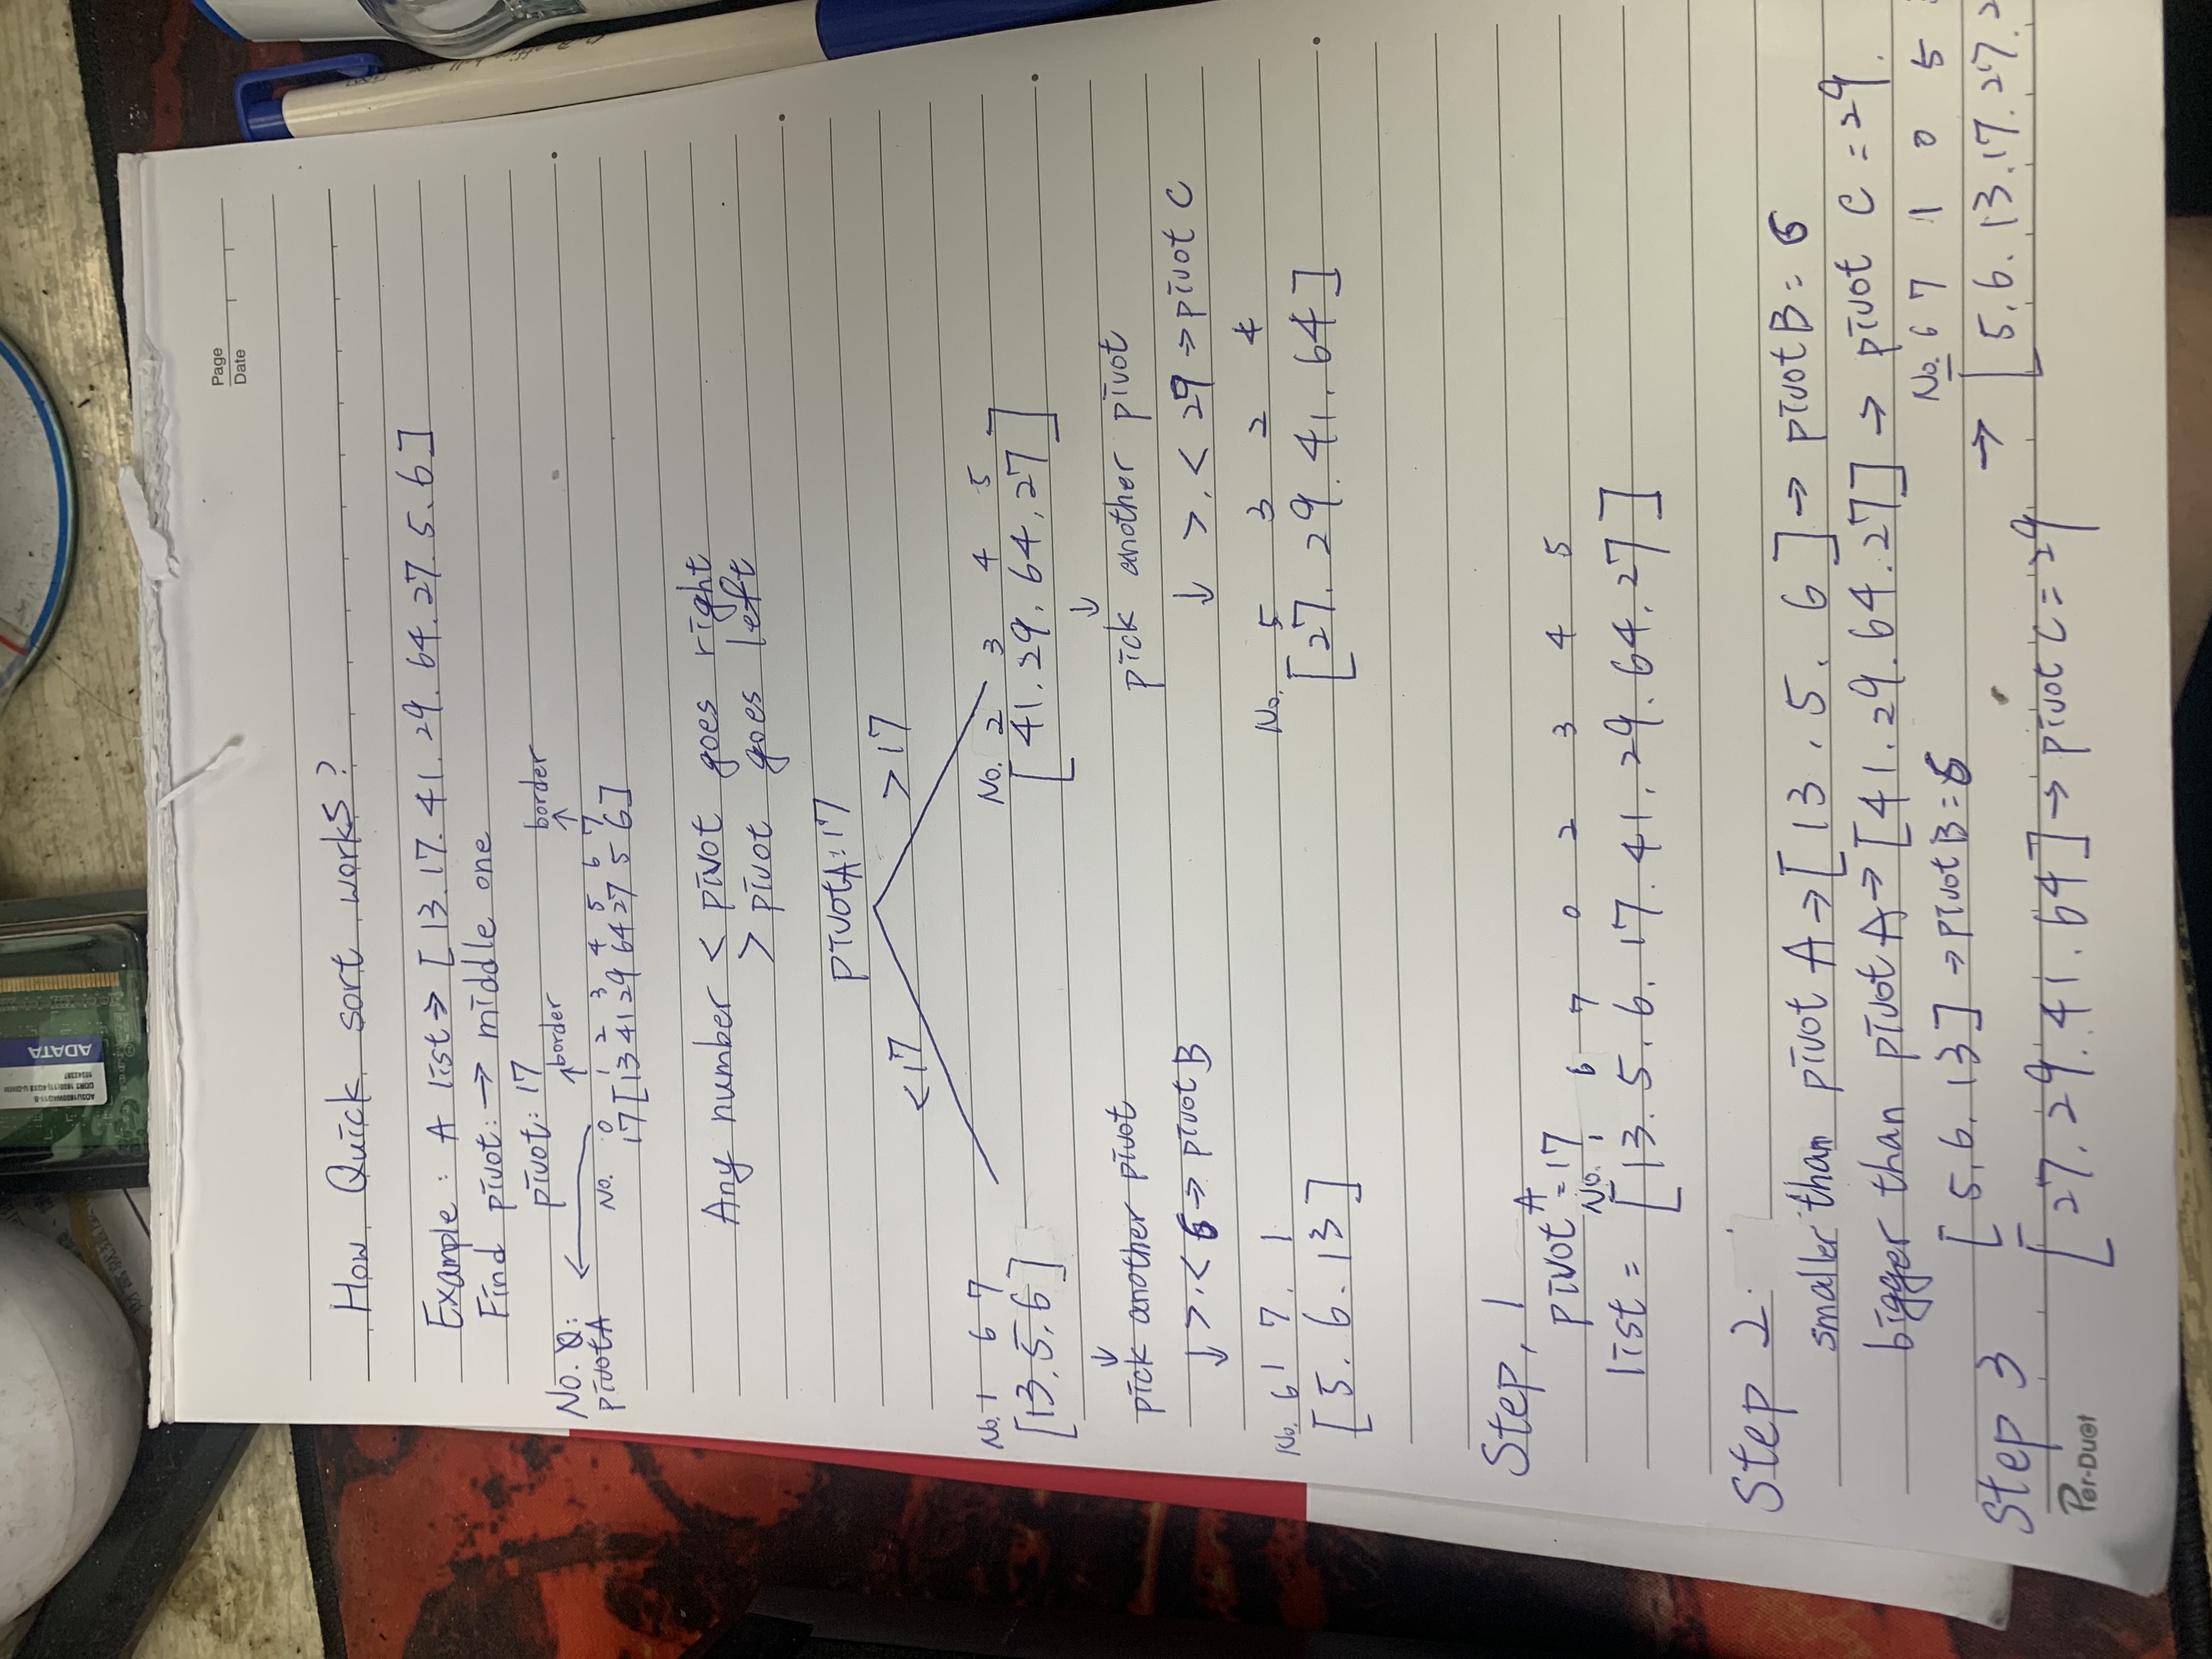 ADATA
Page
Date
How Quick sort works?
Example: A list → [13.17.41.29.64.27.5.6]
Find pivot: → middle one
pivot: 17
No. 0:
pivotA
↑border
border
↑
No. 0 1 2 3 4 5 6 7
17[13 41 29 64 27 5 6]
Any number < pivot goes right
> pivot goes left
pivotA:17
<17 >17
No. 1 6 7
[13.5.6]
No. 2 3 4 5
[41.29.64.27]
↓
pick another pivot
↓ >.< 6 → pivot B
No. 6 1 7. 1
[5.6.13]
↓
pick another pivot
↓ >.< 29 → pivot C
No. 5 3 2 4
[27.29.41.64]
Step, 1
pivot A = 17
No. 1 6 7 0 2 3 4 5
list = [13.5.6.17.41.29.64.27]
Step 2.
smaller than pivot A → [13.5.6] → pivot B = 6
bigger than pivot A → [41.29.64.27] → pivot C = 29.
Step 3
[5.6.13] → pivot B = 6
[27.29.41.64] → pivot C = 29
No. 6 7 1 0 5
→ [5.6.13.17.27.2
Per-Duet